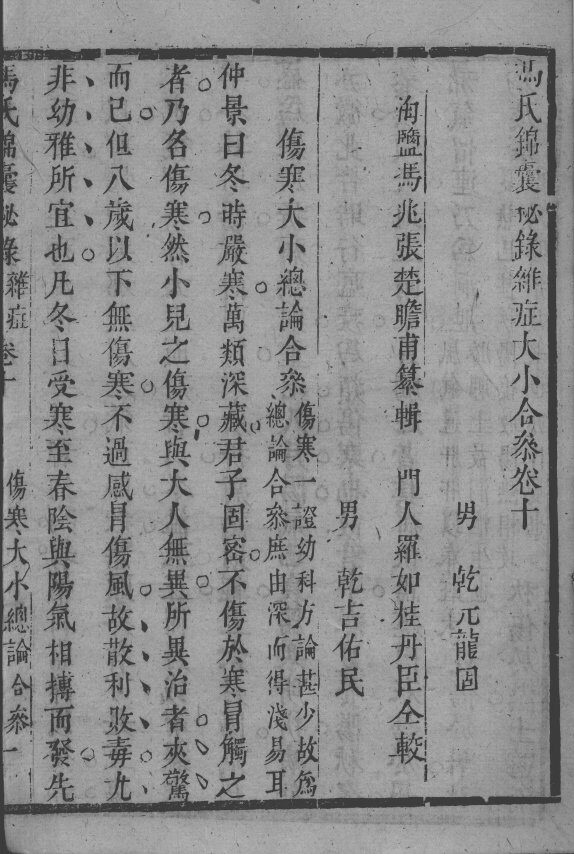 馮氏錦囊秘錄雜症大小合叅卷十
男　乾元龍固
海鹽馮兆張楚瞻甫纂輯　門人羅如桂丹臣仝較
男　乾吉佑民
傷寒大小總論合叅
傷寒一證幼科方論甚少故爲
總論合叅庶由深而得淺易耳
仲景曰冬時嚴寒萬類深藏君子固密不傷於寒冐觸之
者乃名傷寒然小兒之傷寒與大人無異所異治者夾驚
而已但八歲以下無傷寒不過感冐傷風故散利敗毒尢
非幼雅所宜也凡冬日受寒至春陰與陽氣相摶而發先
馮氏錦囊秘錄　雜症卷十　傷寒大小總論合叅　一